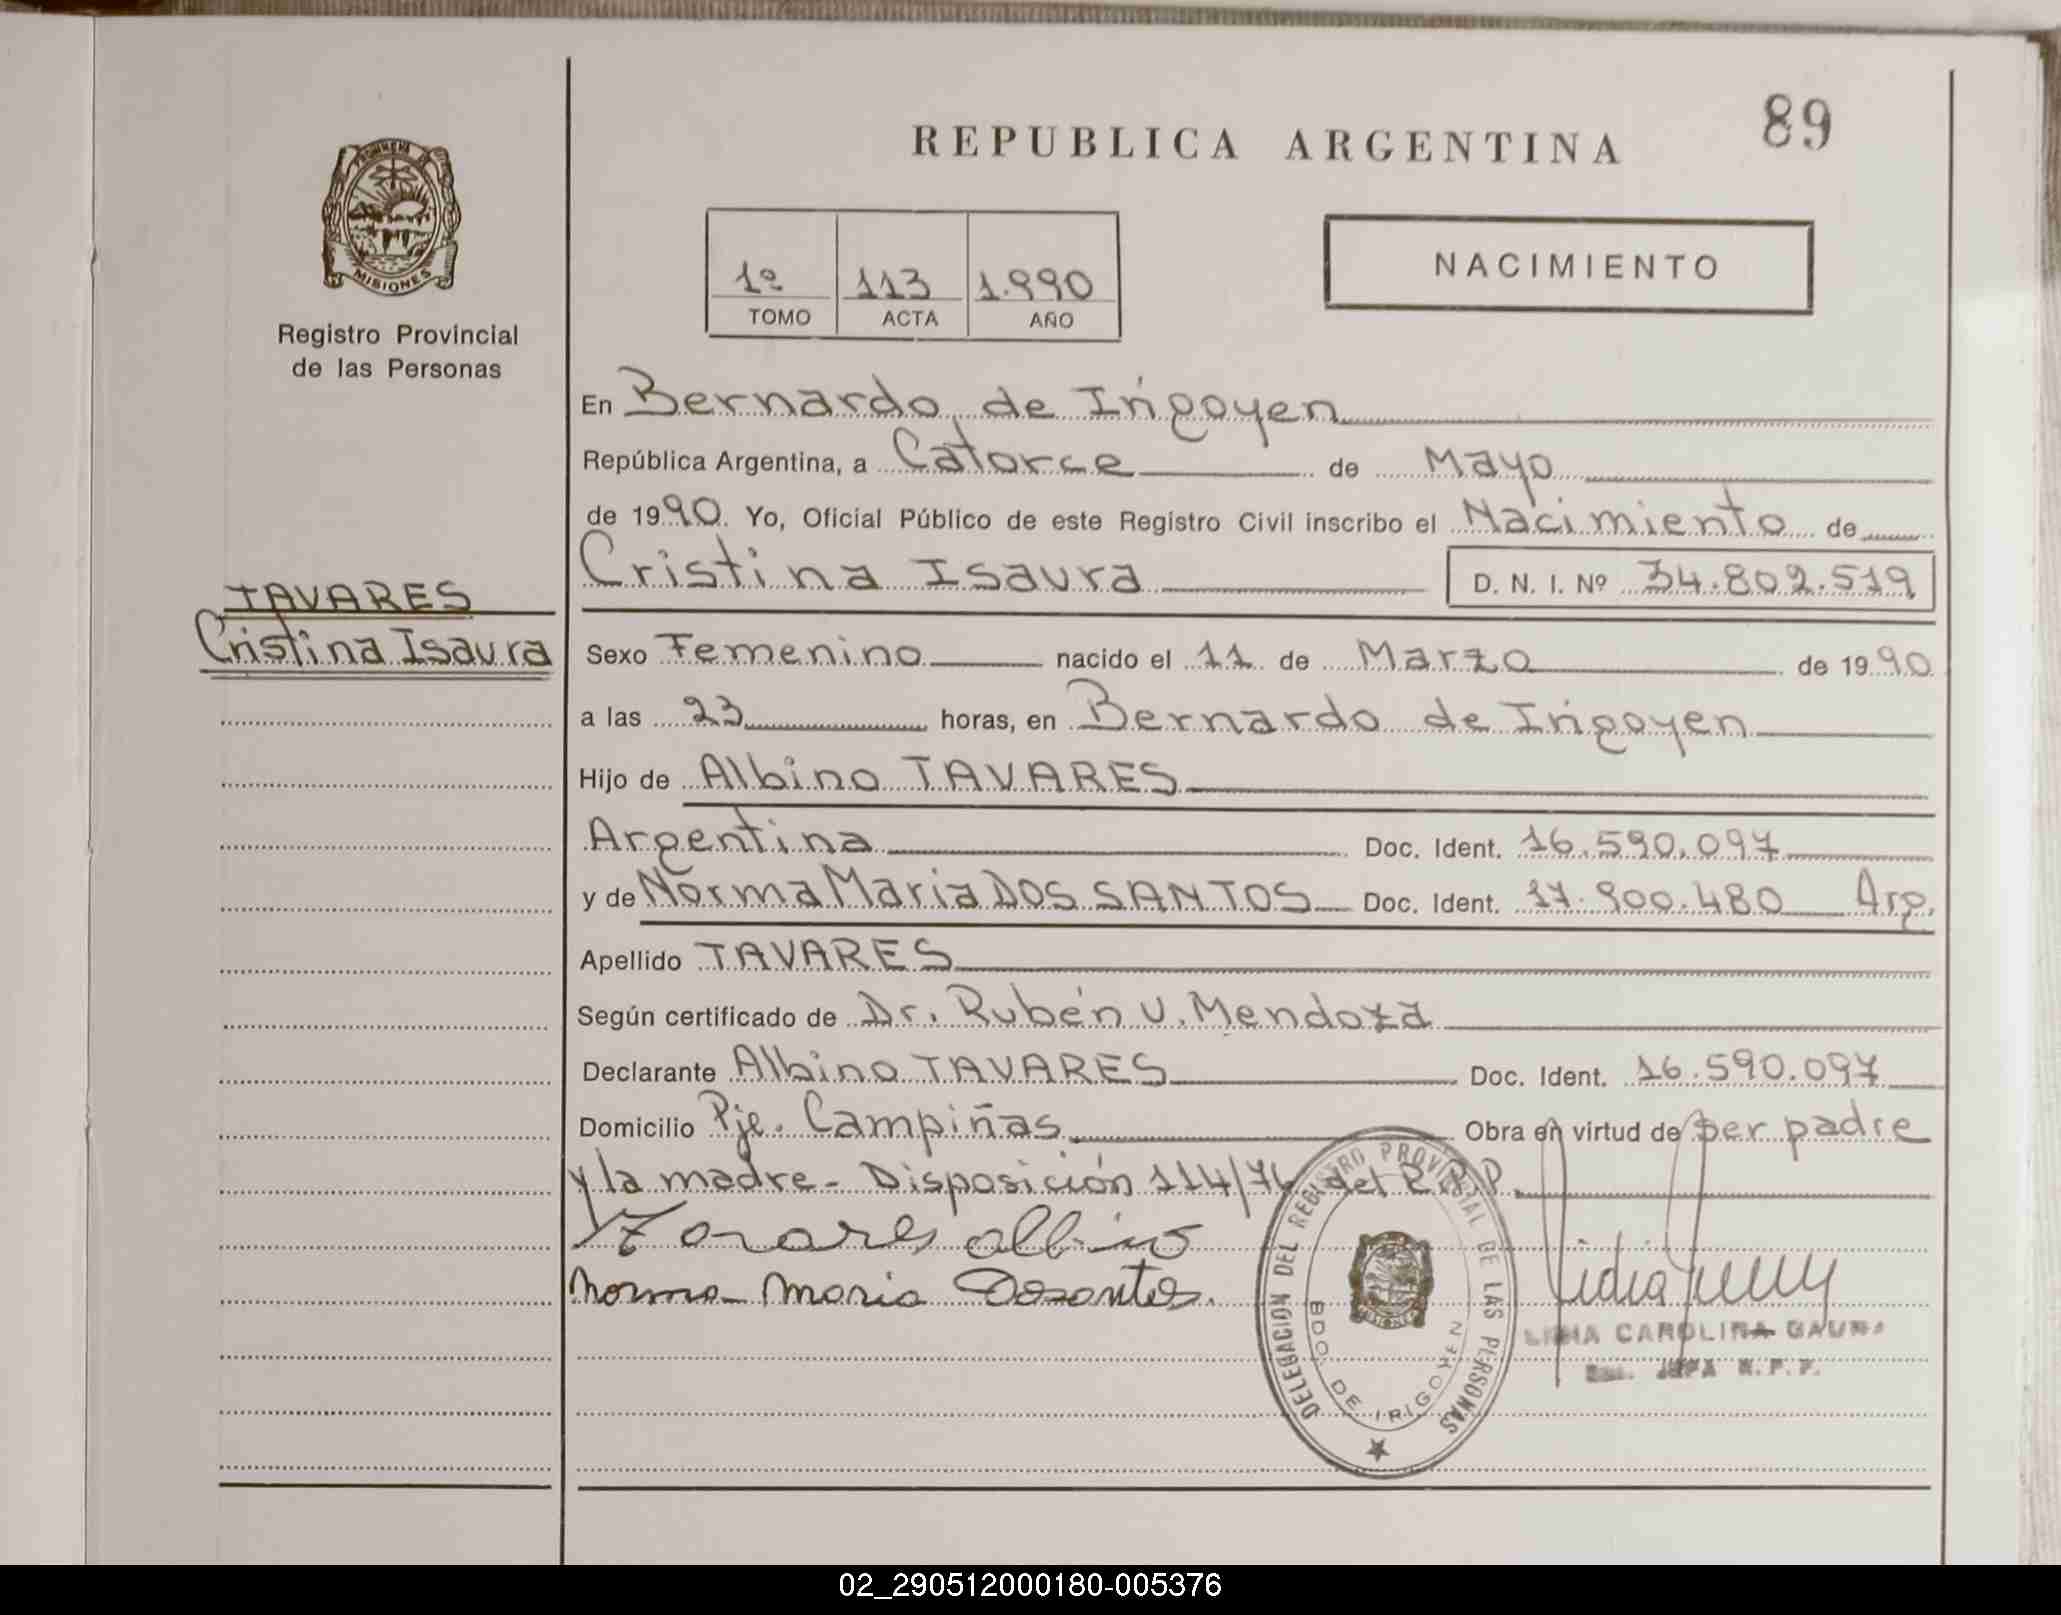 89
REPUBLICA ARGENTINA
PROVINCIA DE
MISIONES
Registro Provincial
de las Personas
1º 113 1.990
TOMO ACTA AÑO
NACIMIENTO
En Bernardo de Irigoyen
República Argentina, a Catorce de Mayo
de 1990. Yo, Oficial Público de este Registro Civil inscribo el Nacimiento de
Cristina Isaura D. N. I. Nº 34.802.519
TAVARES
Cristina Isaura
Sexo Femenino nacido el 11 de Marzo de 1990
a las 23 horas, en Bernardo de Irigoyen
Hijo de Albino TAVARES
Argentina Doc. Ident. 16.590.097
y de Norma Maria DOS SANTOS Doc. Ident. 17.900.480 Arg.
Apellido TAVARES
Según certificado de Dr. Rubén V. Mendoza
Declarante Albino TAVARES Doc. Ident. 16.590.097
Domicilio Pje. Campiñas Obra en virtud de ser padre
y la madre - Disposición 114/76 del R.P.P.
Tavares albino
Norma Maria Dosantos.
DELEGACION DEL REGISTRO PROVINCIAL DE LAS PERSONAS
BDO. DE IRIGOYEN
CAROLINA
JEFA R.P.P.
02_290512000180-005376